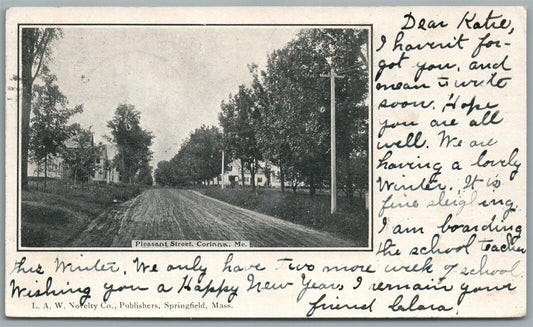 Dear Katie,
I haven't for-
got you, and
mean to write
soon. Hope
you are all
well. We are
having a lovely
Winter. It is
fine sleighing.
I am boarding
the school teacher
Pleasant Street, Corinna, Me.
this Winter. We only have two more week of school.
Wishing you a Happy New Years I remain your
L. A. W. Novelty Co., Publishers, Springfield, Mass.
friend Clara.